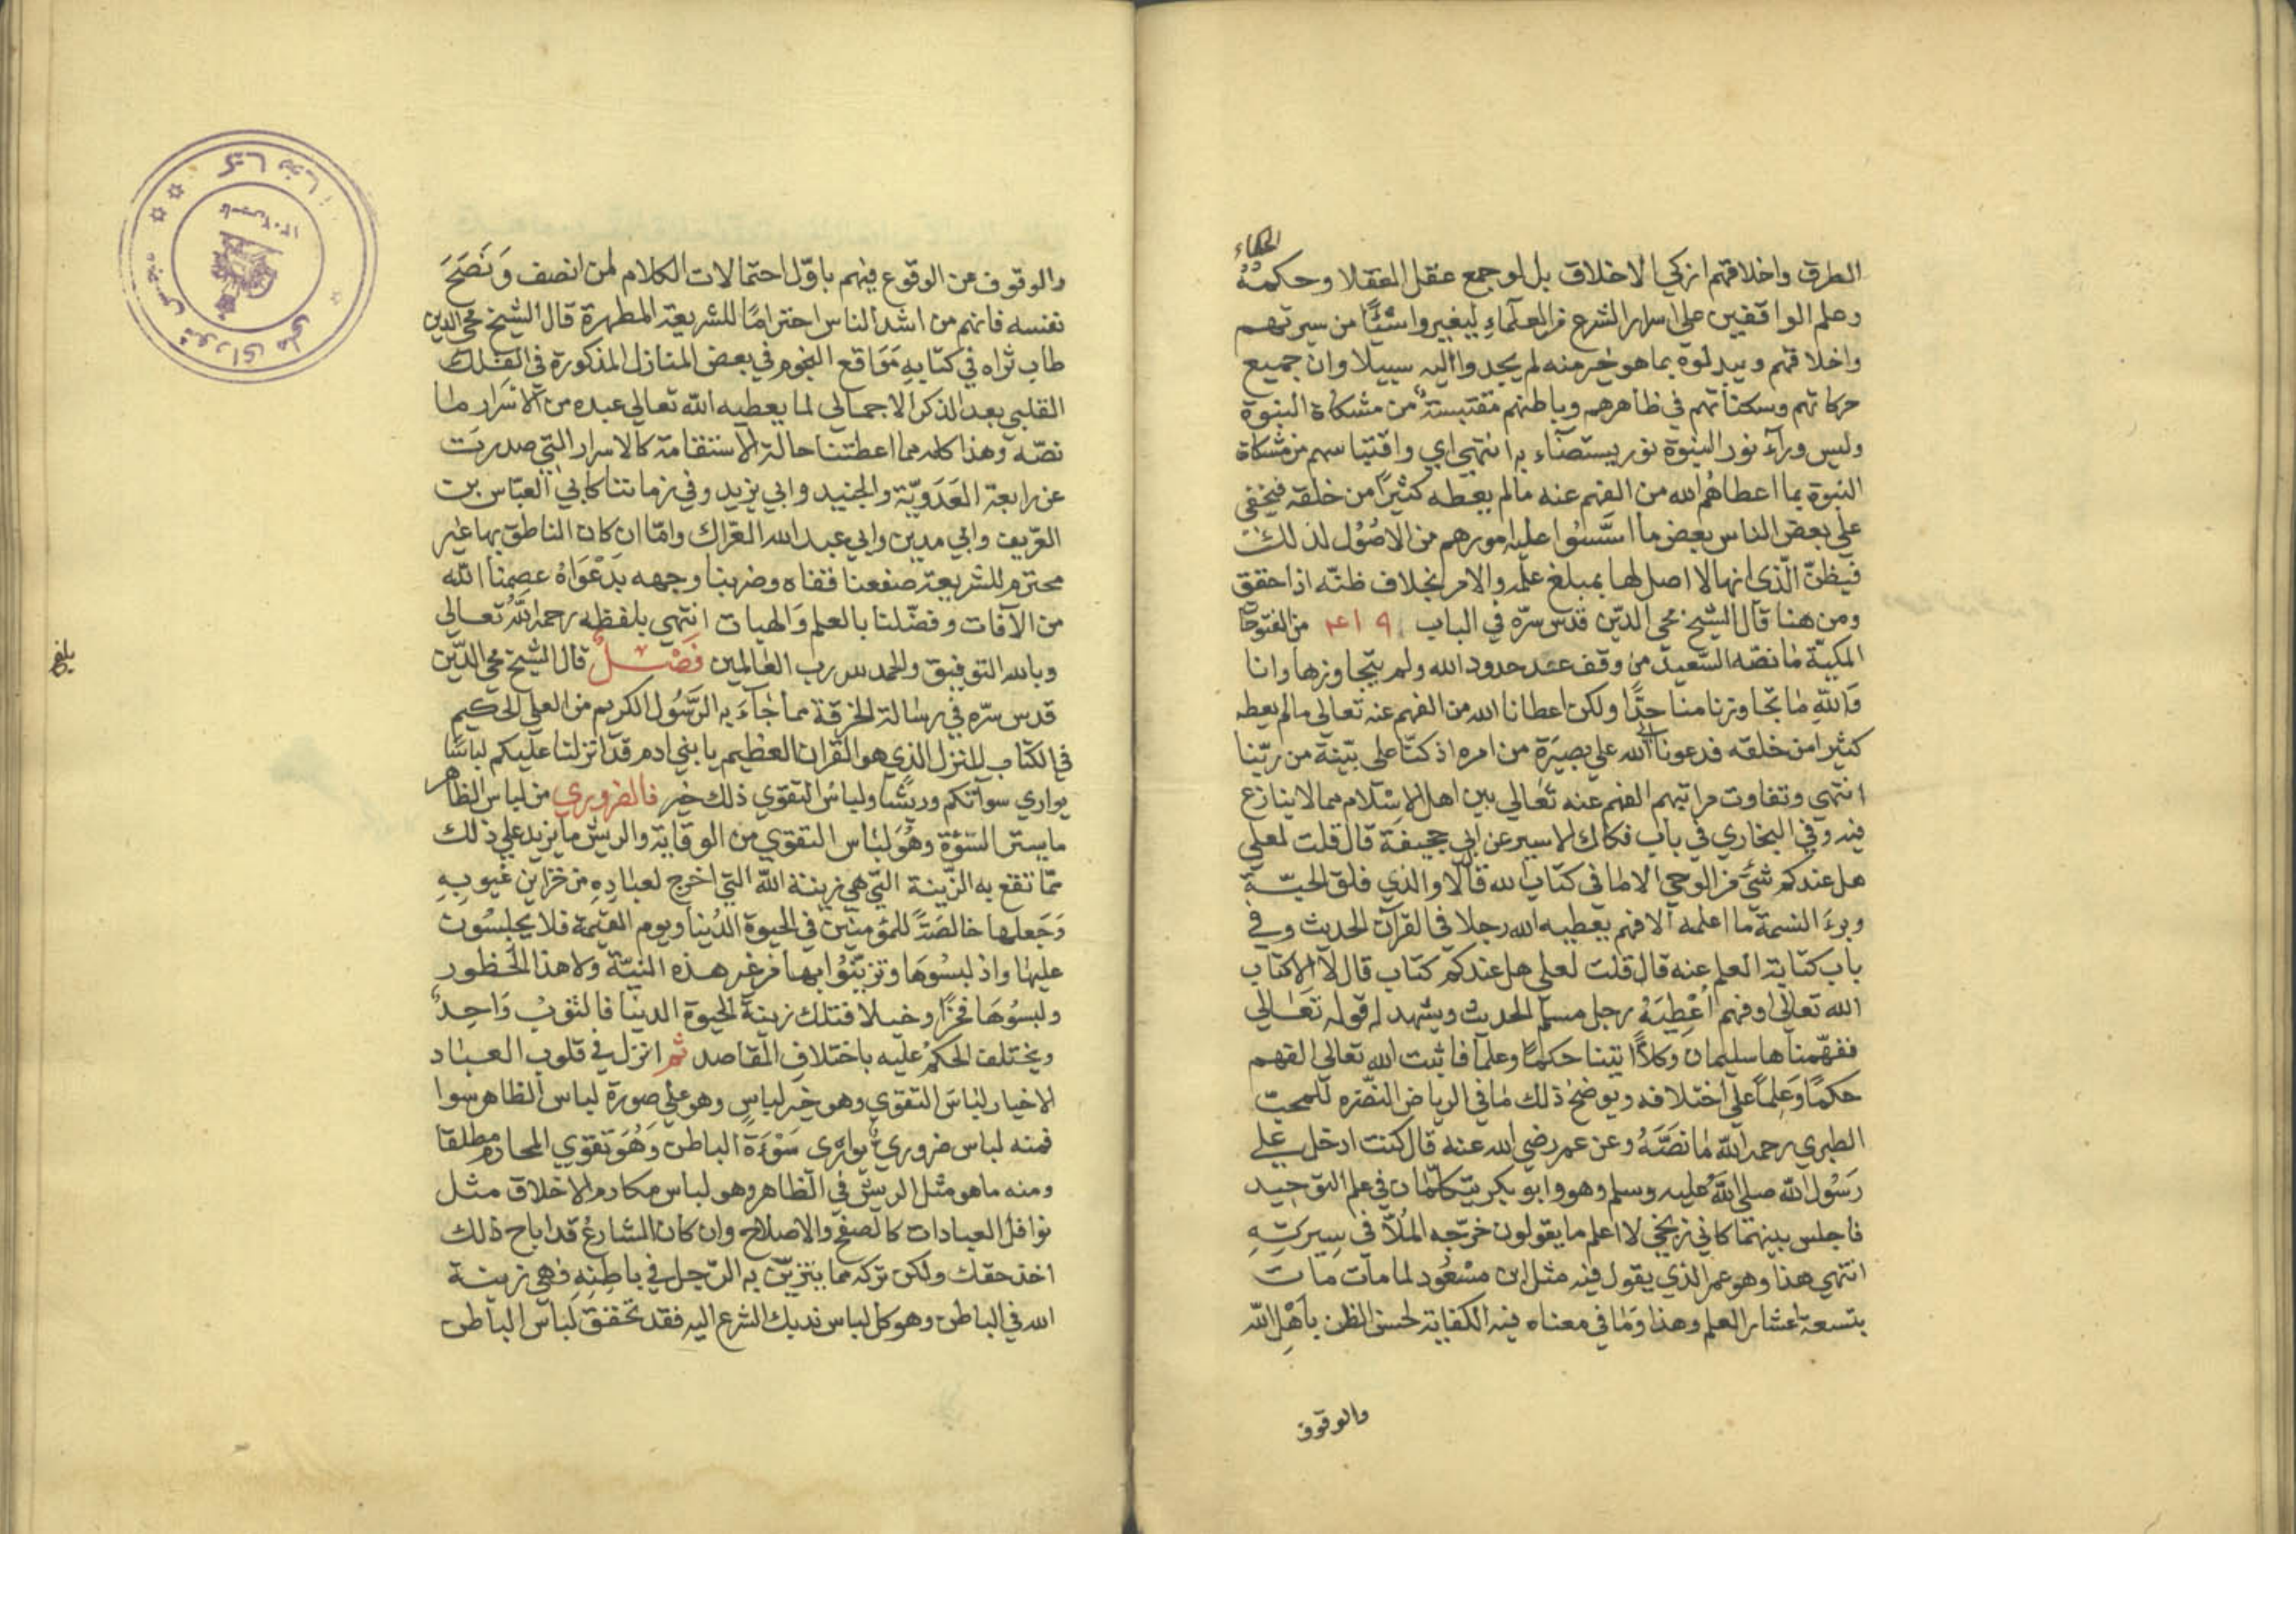 الطرق واخلاقهم ازكى الاخلاق بل لو جمع عقل العقلا وحكمة الحكماء
وعلم الواقفين على اسرار الشرع من العلماء ليغيروا شيئًا من سيرتهم
واخلاقهم ويبدلوه بما هو خير منه لم يجدوا اليه سبيلا وان جميع
حركاتهم وسكناتهم في ظاهرهم وباطنهم مقتبسة من مشكاة النبوة
وليس ورآء نور النبوة نور يستضآء به انتهى اي واقتباسهم من مشكاة
النبوة بما اعطاهم الله من الفهم عنه مالم يعطه كثيرًا من خلقه فيخفى
على بعض الناس بعض ما اسّسُوا عليه امورهم من الاصُوُل لذلك
فيظنّ الّذي انها لا اصل لها بمبلغ علمه والامر بخلاف ظنّه اذا حقق
ومن هنا قال الشيخ محي الدين قدس سرّه في الباب من الفتوحات
المكيّة مانصّه السّعيد من وقف عند حدود الله ولم يتجاوزها وانا
وَاللّهِ مَا تجاوزنا منها حدًّا ولكن اعطانا الله من الفهم عنه تعالى مالم يعطه
كثيرا من خلقه فدعونا الى الله على بصيَرَة من امره اذ كنّا على بيّنة من ربّنا
انتهى وتفاوت مراتبهم الفهم عنه تعٰالى بين اهل الاسْلام مما لا ينازع
فيه وفي البخاري في باب فكاك الاسير عن ابي جحيفة قال قلت لعلي
هل عندكم شئ من الوحي الا ما في كتاب الله قال لا والذي فلق الحبّة
وبرءَ النسمة ما اعلمه الا فهم يعطيه الله رجلا في القرآن الحديث وفي
باب كتابة العلم عنه قال قلت لعلي هل عندكم كتاب قال لا الا كتاب
الله تعالى او فهم اُعْطِيَهُ رجل مسلم الحديث ويشهد له قوله تعَالى
ففهّمناها سليمان وكلاًّ اتينا حكمًا وعلمًا فاثبت الله تعالى الفهم
حكمًا وَعِلمًا على اختلافه ويوضح ذلك مٰا في الرياض النضّره للمحبّ
الطبري رحمه اللّه مٰا نصَّهُ وعن عمر رضي الله عنه قال كنت ادخل على
رَسُول اللّه صلى اللّهُ عليه وسلم وهو وابو بكر يتكلّمان في علم التوحيد
فاجلس بينهما كاني زنجي لا اعلم ما يقولون خرّجه المُلّا في سِيرَتِهِ
انتهى هذا وهو عمر الذي يقول فيه مثل ابن مسْعُود لما مات مات
بتسعة اعشار العلم وهذا وَمٰا في معناه فيه الكفاية لحسن الظن باَهْلِ اللّه
والوقوف
والوقوف عن الوقوع فيهم باوّل احتمالات الكلام لمن انصف وَنَصَحَ
نفسه فانهم من اشد الناس احترامًا للشريعة المطهرة قال الشيخ محي الدين
طاب ثراه في كتابه مَوَاقع النجوم في بعض المنازل المذكورة في الفلك
القلبي بعد الذكر الاجمالي لما يعطيه الله تعالى عبده من الاسْرار ما
نصّه وهذا كله مما اعطتنا حالة الاستقامة كالاسرار التي صدرت
عن رابعة العَدَويّة والجنيد وابي يزيد وفي زماننا كابي العبّاس بن
العريف وابي مدين وابي عبد الله الغزال وامّا ان كان الناطق بها غير
محترم للشريعة صفعنا قفاه وضربنا وجهه بدَعْوَاهُ عصمنا اللّه
من الآفات وفضّلنا بالعلم والهبات انتهى بلفظه رحمه اللّه تعالى
وبالله التوفيق والحمد لله رب العٰالمين فَصْلٌ قال الشيخ محي الدّين
قدس سرّه في رسٰالة الخرقة مما جٰآءَ به الرّسُول الكريم من العلي الحكيم
في الكتاب المنزل الذي هو القرآن العظيم يا بني ادم قد انزلنا عليكم لباسًا
يواري سوآتكم وريشًا ولباسُ التقوى ذلك خير فالضروري من لباس الظاهر
ما يستر السّوْءة وهُوَ لبٰاس التقوى من الوقاية والريش ما يزيد على ذلك
ممّا تقع به الزّينة التي هي زينة اللّه التي اخرج لعبٰادِهِ من خزاين غيوبِهِ
وَجَعلها خالصَةً للمُؤمنين في الحيوة الدُنيا ويوم القيمة فلا يحٰاسبُون
عليهٰا واذ لبسُوهَا وتزيّنُوا بها من غير هذه النيّة ولا هذا الحُظور
ولبسُوهَا فخرًا وخيلا فتلك زينة الحيوة الدنيا فالثوبُ وَاحِدٌ
ويختلف الحكمُ عليه باختلاف المقاصد ثم انزل في قلوب العبٰاد
الاخيار لبٰاسَ التقوى وهو خير لباسٍ وهو على صورة لباس الظاهر سوا
فمنه لباس ضروري يواري سَوْءَةَ الباطن وَهُوَ تقوى المحارم مطلقا
ومنه ما هو مثل الريش في الظاهر وهو لباس مكارم الاخلاق مثل
نوافل العبادات كالصفح والاصلاح وان كان الشارعُ قد اباح ذلك
اخذ حقك ولكن تركه مما يتزيّن به الرّجل في باطِنِهِ فهي زينة
الله في الباطن وهو كل لباس ندبك الشرع اليه فقد تحقق لبَاسُ الباطن
بلغ